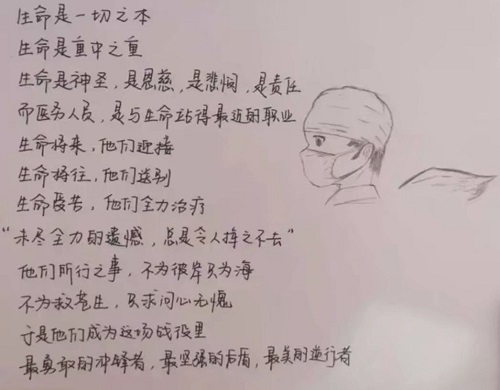 生命是一切之本
生命是重中之重
生命是神圣，是恩慈，是悲悯，是责任
而医务人员，是与生命站得最近的职业
生命将来，他们迎接
生命将往，他们送别
生命受苦，他们全力治疗
“未尽全力的遗憾，总是令人挥之不去”
他们所行之事，不为彼岸只为海
不为救苍生，只求问心无愧
于是他们成为这场战役里
最勇敢的冲锋者，最坚强的后盾，最美的逆行者